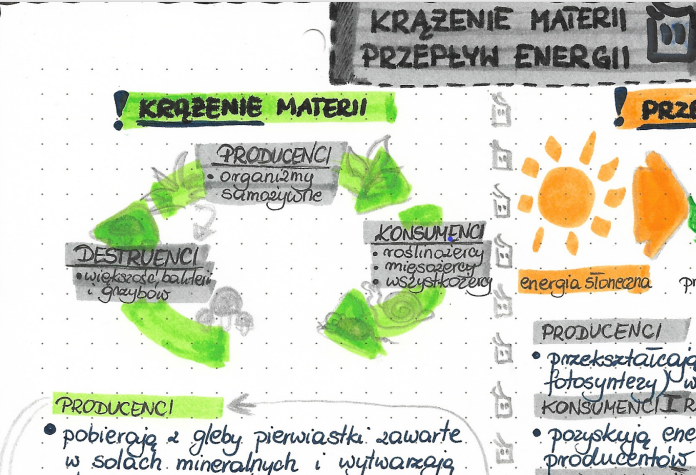 KRĄŻENIE MATERII
PRZEPŁYW ENERGII
! KRĄŻENIE MATERII
PRODUCENCI
• organizmy
samożywne
KONSUMENCI
• roślinożercy
• mięsożercy
• wszystkożercy
DESTRUENCI
• większość bakterii
i grzybów
PRODUCENCI
• pobierają z gleby pierwiastki zawarte
w solach mineralnych i wytwarzają
! PRZE
energia słoneczna
pr
PRODUCENCI
• przekształcają
fotosyntezy) w
KONSUMENCI I R
• pozyskują ene
producentów